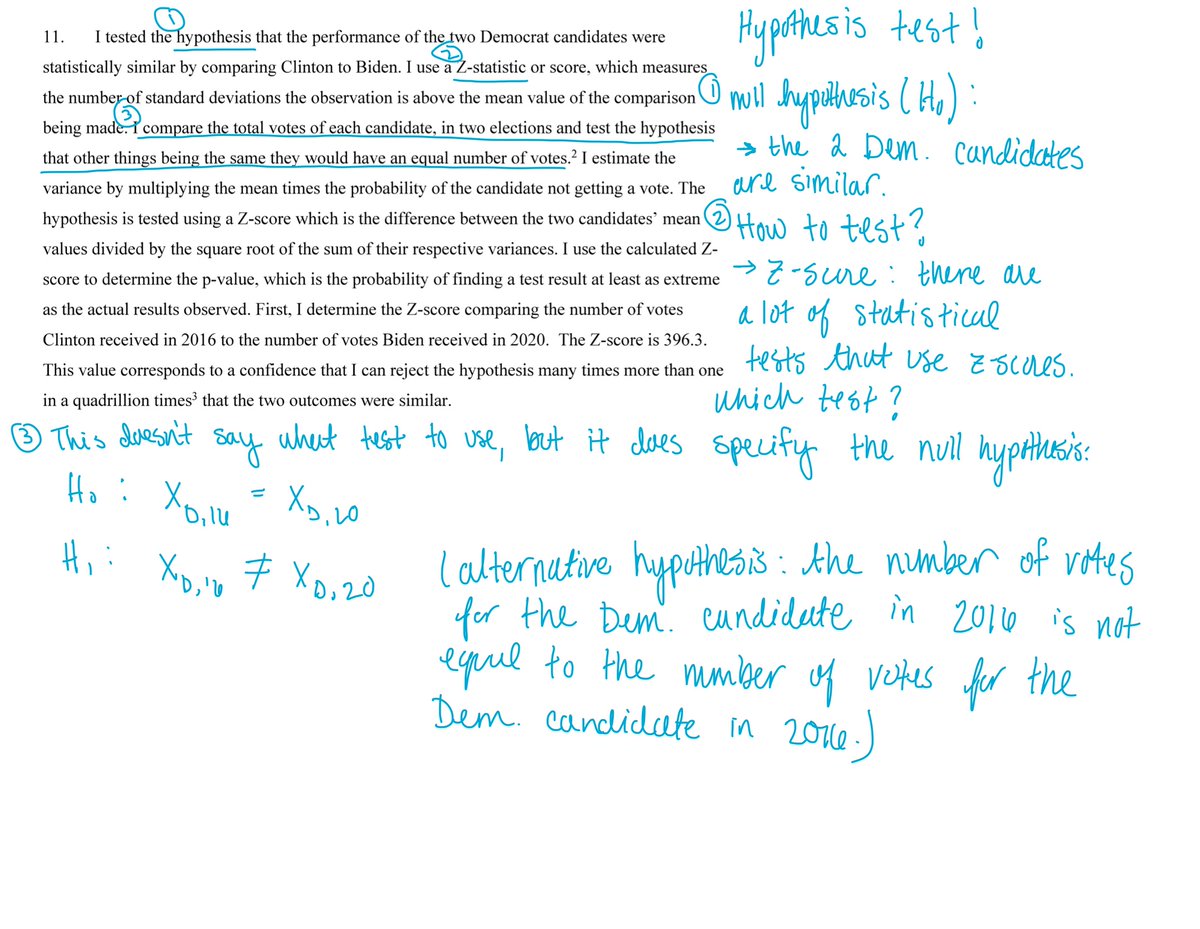 11. I tested the hypothesis that the performance of the two Democrat candidates were
statistically similar by comparing Clinton to Biden. I use a Z-statistic or score, which measures
the number of standard deviations the observation is above the mean value of the comparison
being made. I compare the total votes of each candidate, in two elections and test the hypothesis
that other things being the same they would have an equal number of votes.² I estimate the
variance by multiplying the mean times the probability of the candidate not getting a vote. The
hypothesis is tested using a Z-score which is the difference between the two candidates’ mean
values divided by the square root of the sum of their respective variances. I use the calculated Z-
score to determine the p-value, which is the probability of finding a test result at least as extreme
as the actual results observed. First, I determine the Z-score comparing the number of votes
Clinton received in 2016 to the number of votes Biden received in 2020. The Z-score is 396.3.
This value corresponds to a confidence that I can reject the hypothesis many times more than one
in a quadrillion times³ that the two outcomes were similar.
①
②
③
Hypothesis test!
① null hypothesis (H₀):
→ the 2 Dem. candidates
are similar.
② How to test?
→ Z-score: there are
a lot of statistical
tests that use z-scores.
which test?
③ This doesn't say what test to use, but it does specify the null hypothesis:
H₀: X D,16 = X D,20
H₁: X D,16 ≠ X D,20
(alternative hypothesis: the number of votes
for the Dem. candidate in 2016 is not
equal to the number of votes for the
Dem. candidate in 2016.)